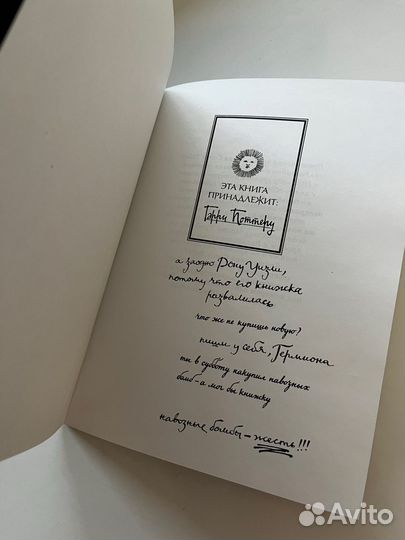 ЭТА КНИГА
ПРИНАДЛЕЖИТ:
Гарри Поттеру
а заодно Рону Уизли,
потому что его книжка
развалилась
что же не купишь новую?
пиши у себя, Гермиона
ты в субботу накупил навозных
бомб – а мог бы книжку
навозные бомбы – жесть!!!
Avito